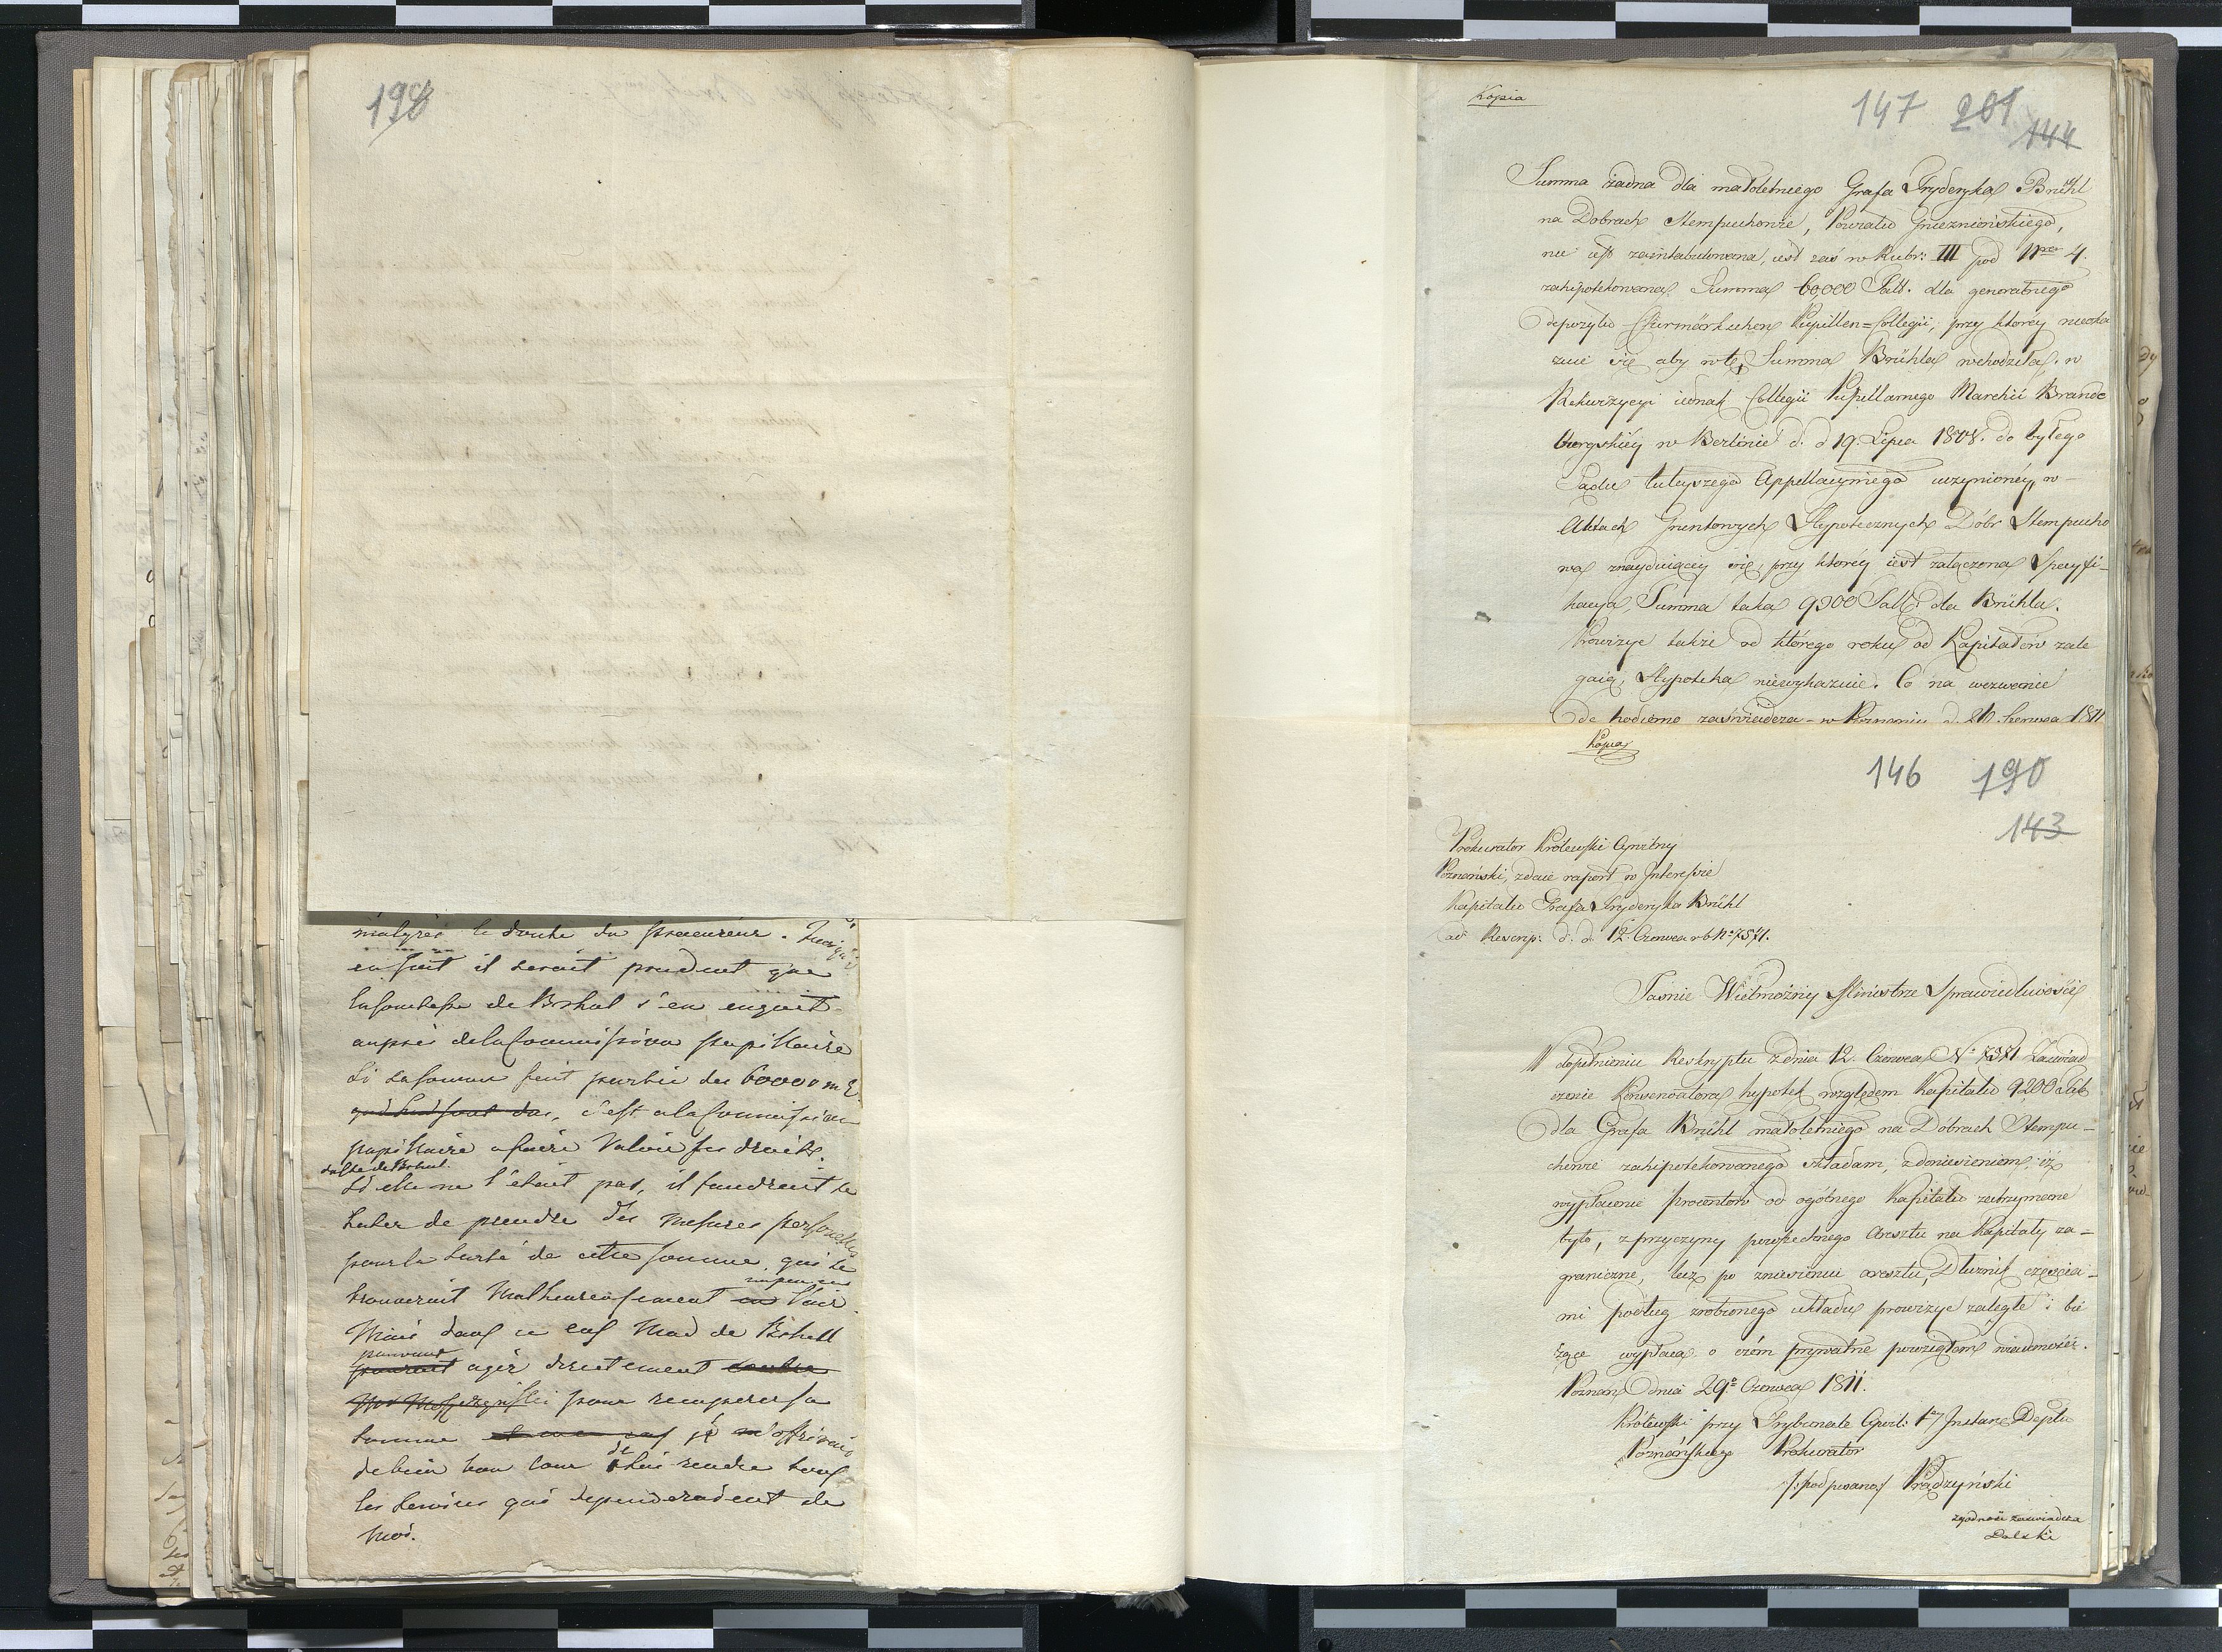 198
malgrés le doute du procureur.
en fait il serait prudent que
la Comtesse de Brhul s'en enquit
auprès de la Commission pupillaire
Si la somme fait partie des 60000
c'est a la Commission
pupillaire a faire valoir ses droits.
Si elle ne l'était pas, il faudrait se
hater de prendre des mesures personelles
pour la sureté de cette somme, qui se
trouverait malheureusement en l'air
Mais dans ce cas Mad de Brhull
pouvant
pourait agir directement contre
pour recuperer sa
somme et en ce cas je m'offrirais
de bien bon cœur de lui rendre tous
les services qui dependeraient de
moi.
Kopia
147 201
144
Summa żadna dla małoletniego Grafa Fryderyka Brühl
na Dobrach Stempuchowie, Powiatu Gnieznińskiego,
nie iest zaintabulowana, iest zaś w Rubr: III pod Nro 4.
zahipotekowana Summa 60,000 Tall. dla generalnego
depozytu Churmärkschen Pupillen=Collegii, przy którey nieoka
zuie się aby w tę Summa Brühla wchodziła, w
Rekwizycyi iednak Collegii Pupillarnego Marchii Brande
burgskiéy w Berlinie d. d 19. Lipca 1808. do byłego
Sądu tuteyszego Appellacyinego uczynionéy, w
Aktach Gruntowych Hypotecznych Dóbr Stempucho
wa znayduiącey się, przy któréy iest załączona Specyfi-
kacya, Summa taka 9200 Tall. dla Brühla.
Prowizye także od którego roku od Kapitałów zale
gaią, Hypoteka niewykazuie. Co na wezwanie
de hodierno zaświadcza - w Poznaniu d. 26. Czerwca 1811
Kopia
146 190
143
Prokurator Królewski Cywilny
Poznański, zdaie raport w Interesie
Kapitału Grafa Fryderyka Brühl
ad Rescrip: d. d. 12. Czerwca rb No 7571.
Jaśnie Wielmożny Ministrze Sprawiedliwości
W dopełnieniu Reskryptu z dnia 12. Czerwca No 7571 Zaświad
czenie Konserwatora hypotek względem Kapitału 9200 tal
dla Grafa Brühl małoletniego na Dobrach Stempu-
chowie zahipotekowanego składam, z doniesieniem, iż
wypłacenie procentów od ogólnego Kapitału zatrzymane
było, z przyczyny powszechnego aresztu na Kapitały za-
graniczne, lecz po zniesieniu aresztu, Dłużnik częścia-
mi podług zrobionego układu prowizye zaległe i bie
żące wypłaca. o czém prywatnie powziąłem wiadomość.
Poznań dnia 29o Czerwca 1811.
Królewski przy Trybunale Cywil: 1ey Instanc: Deptu
Poznańskiego Prokurator
/:podpisano/ Prądzyński
zgodność zaświadcza
Dolski